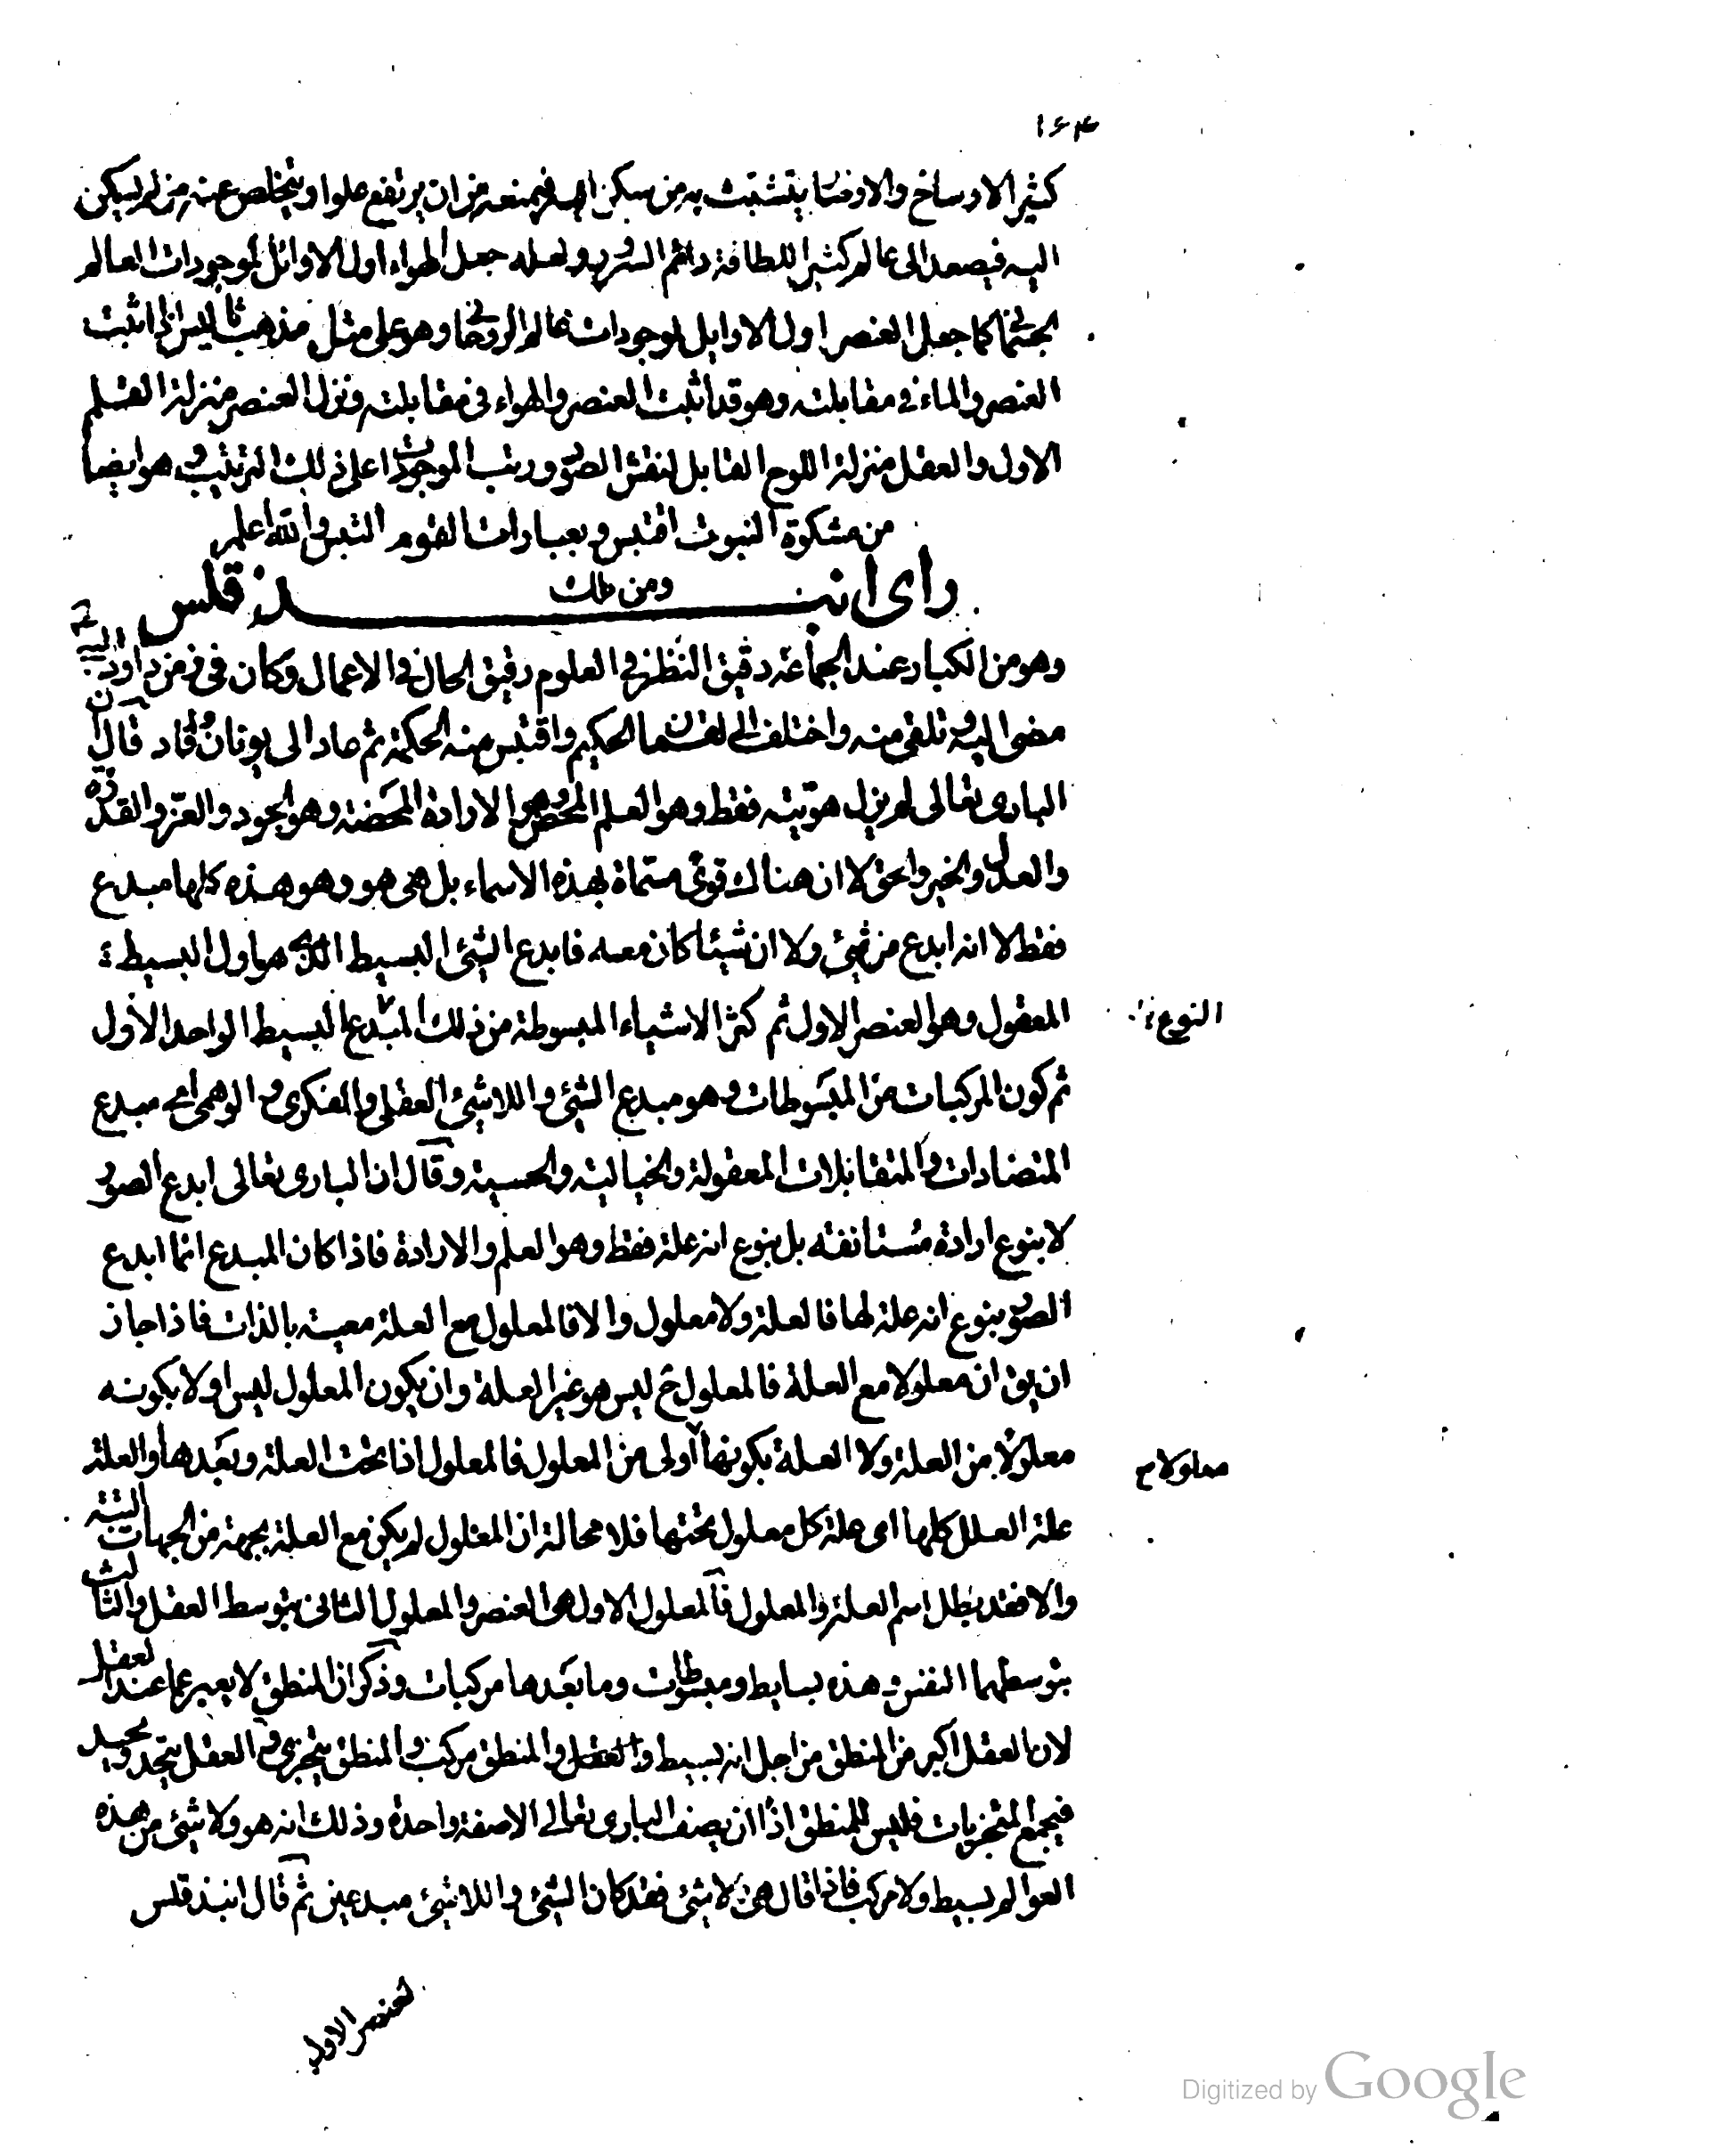 ١٦٤
كثير الاوساخ والاوضار يتشبث به من سكن اليه فيمنعه من ان يرتفع علوا ويتخلص عنه من لم يسكن
اليه فيصعد الى عالم كثير اللطافة دائم السرور ولعله جعل الهواء اول الاوائل لموجودات العالم
الجسماني كما جعل العنصر اول الاوايل لموجودات عالم الروحاني وهو على مثل مذهب ثاليس اذ اثبت
العنصر والماء في مقابلته وهو قد اثبت العنصر والهواء في مقابلته ونزل العنصر منزلة القلم
الاول والعقل منزلة اللوح القابل لنقش الصور ورتب الموجودات على ذلك الترتيب وهو ايضا
من مشكوة النبوت اقتبس وبعبارات القوم التبس والله اعلم
راى انبذقلس
ومن ذلك
وهو من الكبار عند الجماعة دقيق النظر في العلوم رقيق الحال في الاعمال وكان في زمن داود النبي
مضى اليه وتلقى منه واختلف الى لقمان الحكيم واقتبس منه الحكمة ثم عاد الى يونان وافاد قال ان
البارى تعالى لم يزل هويته فقط وهو العلم المحض وهو الارادة المحضة وهو الجود والعز والقدرة
والعدل والخير والحق لا ان هناك قوى مسماة بهذه الاسماء بل هى هو وهو هذه كلها مبدع
فقط لا انه ابدع من شئ ولا ان شيئا كان معه فابدع الشئ البسيط الذى هو اول البسيط
المعقول وهو العنصر الاول ثم كثر الاشياء المبسوطة من ذلك المبدع البسيط الواحد الاول
النوع
ثم كون المركبات من المبسوطات وهو مبدع الشئ واللاشئ العقلى والفكرى والوهمى اى مبدع
المتضادات والمتقابلات المعقولة والخيالية والحسية وقال ان البارى تعالى ابدع الصور
لا بنوع ارادة مستانفة بل بنوع انه علة فقط وهو العلم والارادة فاذا كان المبدع انما ابدع
الصور بنوع انه علة لها فالعلة ولا معلول والا فالمعلول مع العلة معية بالذات فاذا جاز
ان يق ان معلولا مع العلة فالمعلول ح ليس هو غير العلة وان يكون المعلول ليس اولا بكونه
معلولا من العلة ولا العلة بكونها اولى من المعلول فالمعلول اذا تحت العلة وبعدها والعلة
معلولا م
علة العلل كلها اى علة كل معلول تحتها فلا محالة ان المعلول لم يكن مع العلة بجهة من الجهات البتة
والا فقد بطل اسم العلة والمعلول فالمعلول الاول هو العنصر والمعلول الثانى بتوسط العقل والثالث
بتوسطهما النفس وهذه بسايط ومبسوطات وما بعدها مركبات وذكر ان المنطق لا يعبر عما عند العقل
لان العقل اكبر من المنطق من اجل انه بسيط والعقل والمنطق مركب والمنطق يتجزى والعقل يتحد ويحد
فيجمع المتجزيات فليس للمنطق اذا ان يصف البارى تعالى الا صفة واحدة وذلك انه هو ولا شئ من هذه
العوالم بسيط ولا مركب فاذا قال هو لا شئ فقد كان الشئ واللاشئ مبدعين ثم قال انبذقلس
العنصر الاول
Digitized by Google